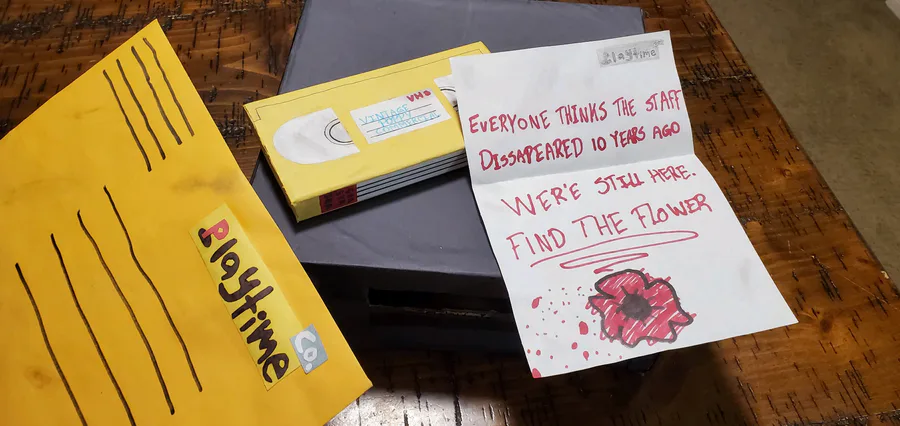 Playtime
Co.
VHS
VINTAGE
POPPY
COMMERCIAL
Playtime
EVERYONE THINKS THE STAFF
DISSAPEARED 10 YEARS AGO
WER'E STILL HERE.
FIND THE FLOWER